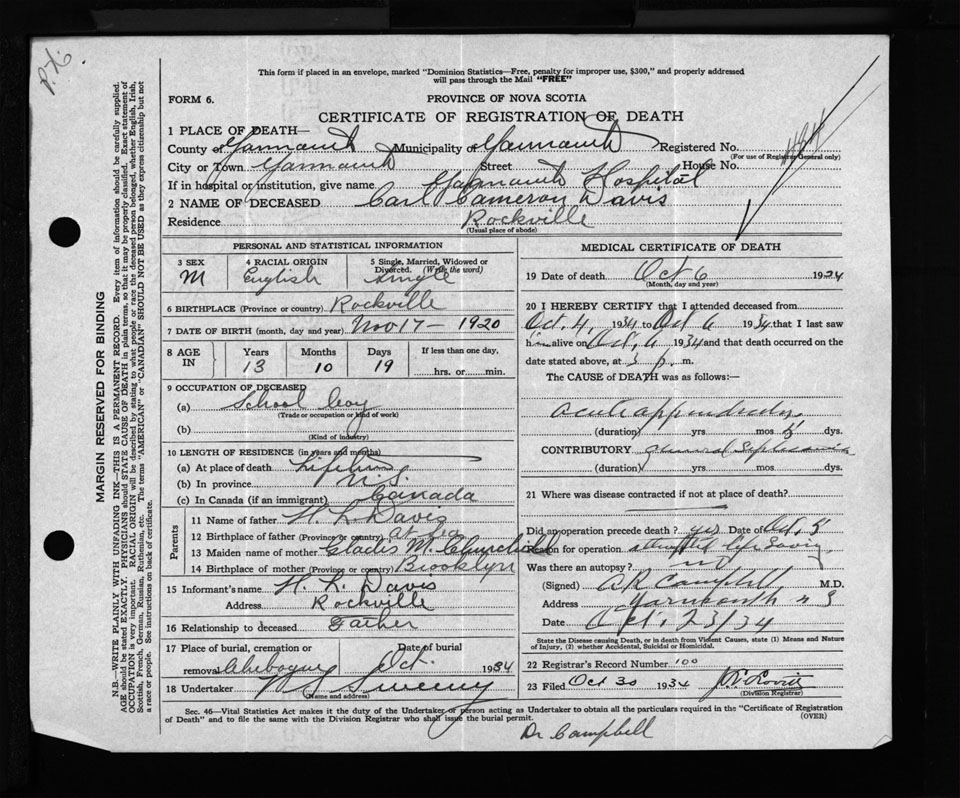 P.X.
This form if placed in an envelope, marked "Dominion Statistics—Free, penalty for improper use, $300," and properly addressed
will pass through the Mail "FREE"
FORM 6.
PROVINCE OF NOVA SCOTIA
CERTIFICATE OF REGISTRATION OF DEATH
1 PLACE OF DEATH—
County of Yarmouth Municipality of Yarmouth Registered No.
(For use of Registrar General only)
City or Town Yarmouth Street House No.
If in hospital or institution, give name Yarmouth Hospital
2 NAME OF DECEASED Carl Cameron Davis
Residence Rockville
(Usual place of abode)
PERSONAL AND STATISTICAL INFORMATION
3 SEX 4 RACIAL ORIGIN 5 Single, Married, Widowed or
Divorced. (Write the word)
M English Single
6 BIRTHPLACE (Province or country) Rockville
7 DATE OF BIRTH (month, day and year) Nov 17 — 1920
8 AGE IN Years Months Days If less than one day,
13 10 19 hrs. or min.
9 OCCUPATION OF DECEASED
(a) School boy
(Trade or occupation or kind of work)
(b)
(Kind of industry)
10 LENGTH OF RESIDENCE (in years and months)
(a) At place of death Lifetime
(b) In province N.S.
(c) In Canada (if an immigrant) Canada
Parents
11 Name of father H. L. Davis
12 Birthplace of father (Province or country) at Sea
13 Maiden name of mother Gladis M. Churchill
14 Birthplace of mother (Province or country) Brooklyn
15 Informant's name H. L. Davis
Address Rockville
16 Relationship to deceased Father
17 Place of burial, cremation or Date of burial
removal Chebogue Oct. 1934
18 Undertaker Sweeny
(Name and address)
MEDICAL CERTIFICATE OF DEATH
19 Date of death Oct 6 1934
(Month, day and year)
20 I HEREBY CERTIFY that I attended deceased from
Oct. 4, 1934 to Oct 6 1934 that I last saw
him alive on Oct. 6 1934 and that death occurred on the
date stated above, at 3 p. m.
The CAUSE of DEATH was as follows:—
acute appendicitis
(duration) yrs mos 5 dys.
CONTRIBUTORY General Septicaemia
(duration) yrs mos dys.
21 Where was disease contracted if not at place of death?
Did an operation precede death? yes Date of Oct. 5
Reason for operation attempted life saving
Was there an autopsy? no
(Signed) A R Campbell M.D.
Address Yarmouth N S
Date Oct. 23/34
State the Disease causing Death, or in death from Violent Causes, state (1) Means and Nature
of Injury, (2) whether Accidental, Suicidal or Homicidal.
22 Registrar's Record Number 100
23 Filed Oct 30 1934
(Division Registrar)
Sec. 46—Vital Statistics Act makes it the duty of the Undertaker or person acting as Undertaker to obtain all the particulars required in the "Certificate of Registration
of Death" and to file the same with the Division Registrar who shall issue the burial permit. (OVER)
Dr Campbell
MARGIN RESERVED FOR BINDING
N.B.—WRITE PLAINLY WITH UNFADING INK—THIS IS A PERMANENT RECORD. Every item of information should be carefully supplied.
AGE should be stated EXACTLY. PHYSICIANS should STATE CAUSE OF DEATH in plain terms, so that it may be properly classified. Exact statement of
OCCUPATION is very important. RACIAL ORIGIN will be described by stating to what people or race the deceased person belonged, whether English, Irish,
Scottish, French, German, Russian, Ruthenian, etc. The terms "AMERICAN" or "CANADIAN" SHOULD NOT BE USED as they express citizenship but not
a race or people. See instructions on back of certificate.